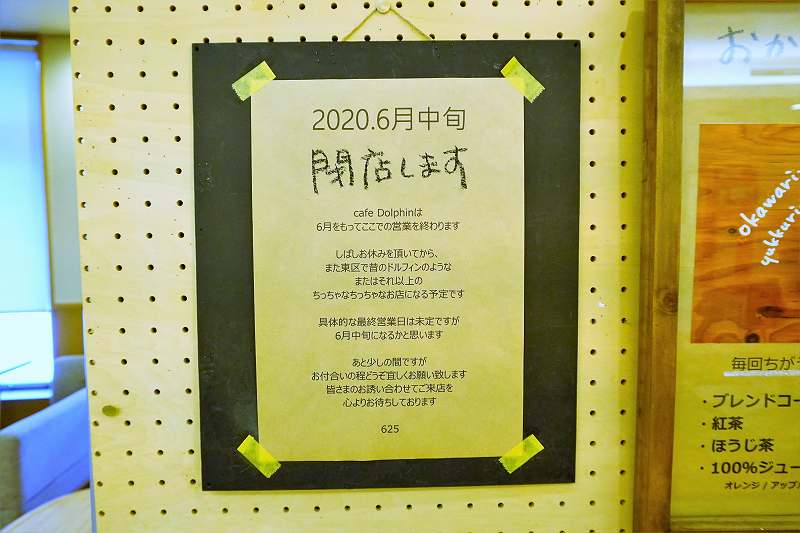 2020.6月中旬
閉店します
cafe Dolphinは
6月をもってここでの営業を終わります
しばしお休みを頂いてから、
また東区で昔のドルフィンのような
またはそれ以上の
ちっちゃなちっちゃなお店になる予定です
具体的な最終営業日は未定ですが
6月中旬になるかと思います
あと少しの間ですが
お付合いの程どうぞ宜しくお願い致します
皆さまのお誘い合わせてご来店を
心よりお待ちしております
625
おか
okawari
yukkuri
毎回ちが
・ブレンドコー
・紅茶
・ほうじ茶
・100%ジュー
オレンジ / アップル